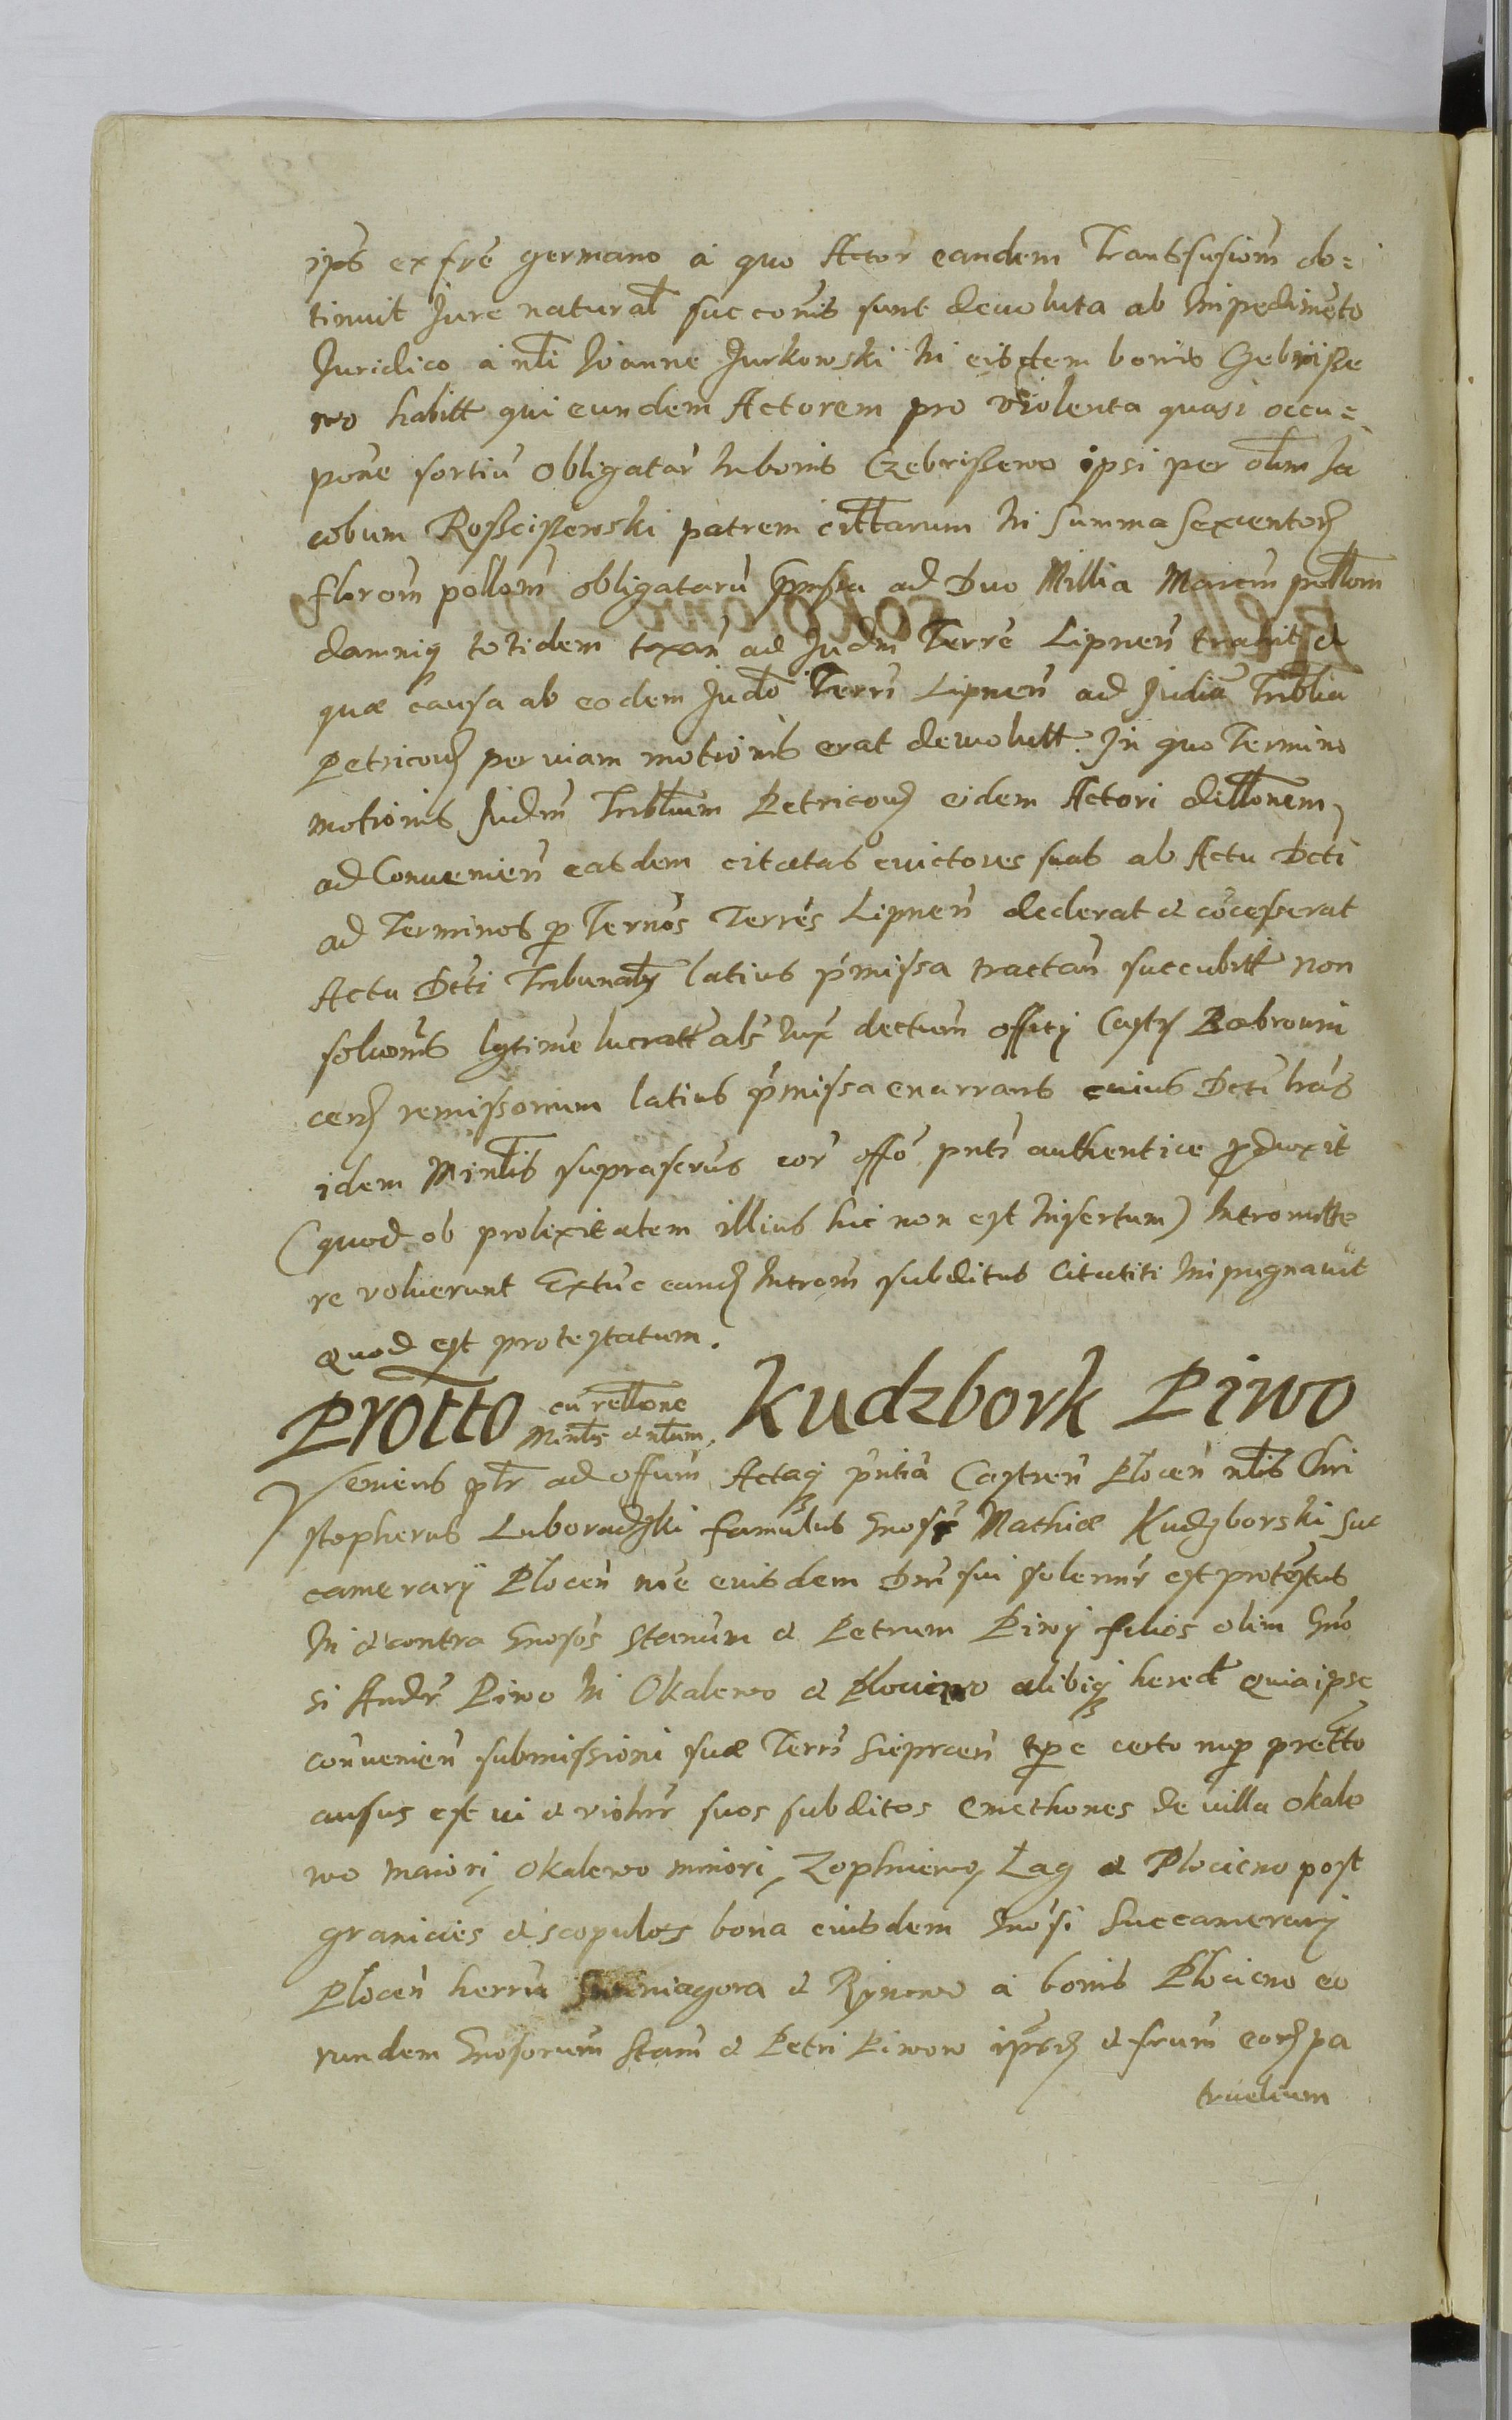 ips ex fre germano a quo Actor eandem Transfusiom ob=
tinuit Jure natural succoms sunt devoluta ab Impedimeto
Juridico a nli Joanne Jurkowski In eisdem bonis Czebrisze
wo habitt qui eundem Actorem pro violenta quasi occu=
pone sortiu obligatar In bonis Czebriszewo ipsi per olim Ja
cobum Rosciszewski patrem cittarum In Summa Sexcentor
florom pollom obligataru ad Duo Millia Marcm pollom
damniq totidem taxan ad Judm Terre Lipnen trahit &
quæ causa ab eodem Judo Terri Lipnen ad Judiu Triblia
Petricou per viam motionis erat devolutt. In quo Termino
motionis Judm Triblium Petricou eidem Actori dillonem,
ad Convenien easdem citatas evictores suas ab Actu Dcti
ad Terminos p Ternos Terres Lipnen dederat & cocesserat
Actu Dcti Tribunaly latius pmissa tractan succubitt non
soluoms lgtime lucratt als Inx dectum officij Castr Bobrouni
cen remissorium latius pmissa enarrans cuius Dcti lras
idem Minlis suprascrus cor offo pnti authentice produxit
(quod ob prolixitatem illius hic non est Insertum) Intromitte
re voluerunt Extuc eand Introm subditus Citatiti Impugnauit
quod est protestatum.
Protto cu rellone Minlis & nlium, Kudzbork Piwo
Veniens plr ad offum Actaq pntia Castren Plocen nlis Chri
stopherus Luboradzki famulus Gnosi Mathiæ Kudzborski Suc
camerarij Plocen noie eiusdem Dni sui solemr est protestus
In & contra Gnosos Stanum & Petrum Piwy filios olim Gno
si Andr Piwo In Okalewo & Plocieno alibiq hered Quia ipse
convenien submissioni suæ Terri Sieprcen tpe certo nup pretto
ausus est vi & violnr suos subditos Cmethones de villa Okale
wo maiori, Okalewo minori, Zophiewo, Lag & Plocieno post
granicies & scopulos bona eiusdem Gnosi Succamerarij
Plocen herru niagora & Rynowo a bonis Plocieno eo
rundem Gnosorum Stani & Petri Piwow ipsor & frum eor pa
truelium